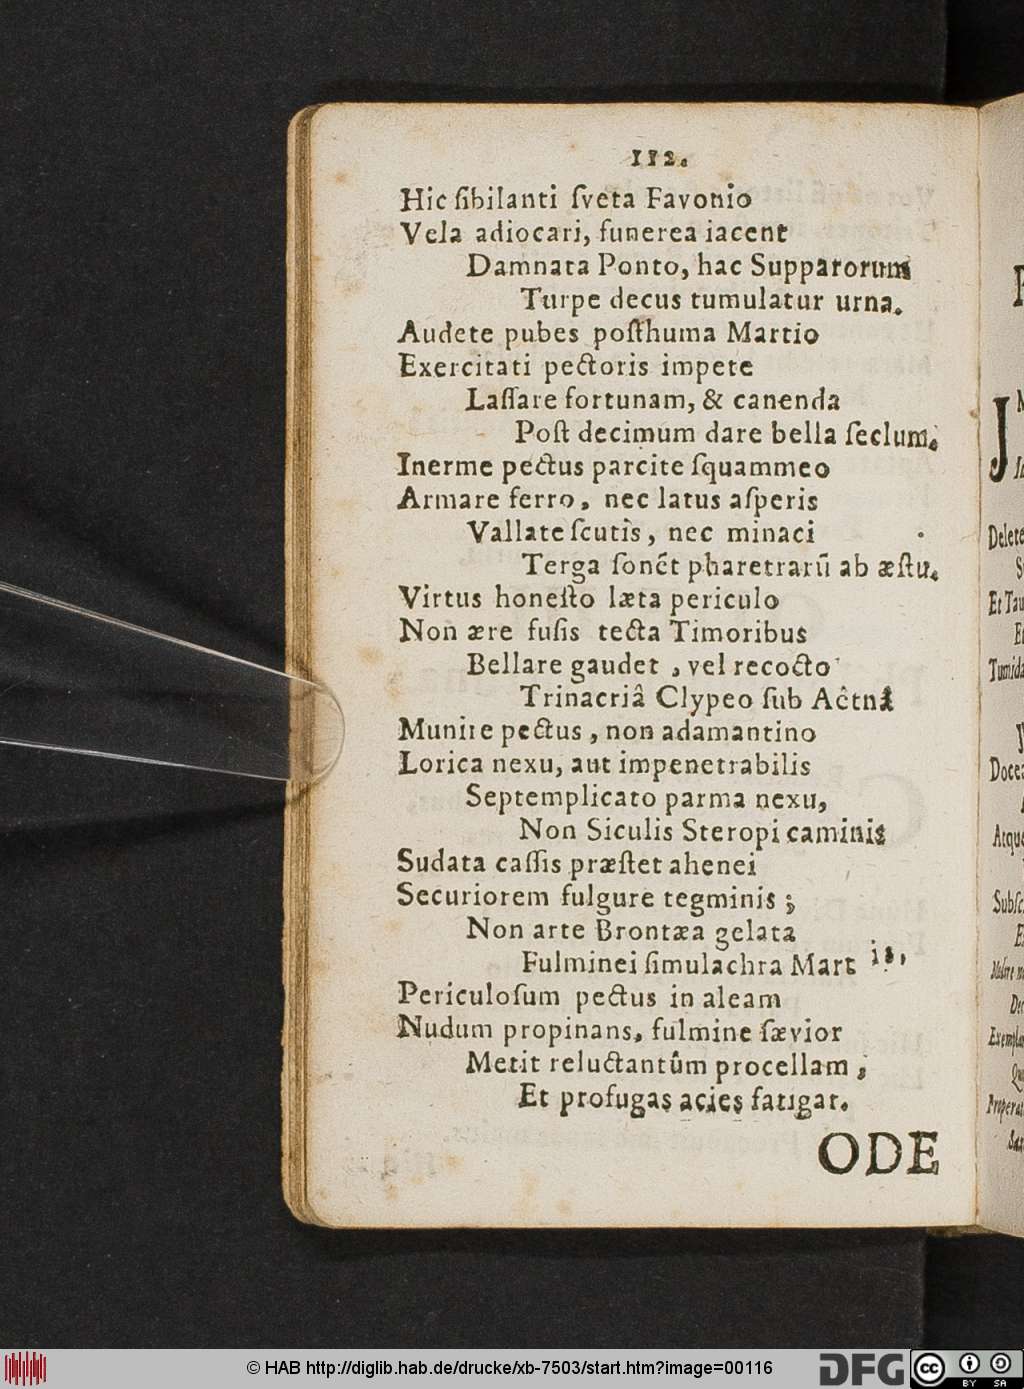 112.
Hic ſibilanti ſveta Favonio
Vela adiocari, funerea iacent
Damnata Ponto, hac Supparorum
Turpe decus tumulatur urna.
Audete pubes poſthuma Martio
Exercitati pectoris impete
Laſſare fortunam, & canenda
Poſt decimum dare bella ſeclum.
Inerme pectus parcite ſquammeo
Armare ferro, nec latus aſperis
Vallate ſcutis, nec minaci
Terga ſonẽt pharetrarũ ab æſtu.
Virtus honeſto læta periculo
Non ære fuſis tecta Timoribus
Bellare gaudet, vel recocto
Trinacriâ Clypeo ſub Aêtnâ
Munire pectus, non adamantino
Lorica nexu, aut impenetrabilis
Septemplicato parma nexu,
Non Siculis Steropi caminis
Sudata caſſis præſtet ahenei
Securiorem fulgure tegminis;
Non arte Brontæa gelata
Fulminei ſimulachra Martis,
Periculoſum pectus in aleam
Nudum propinans, fulmine ſævior
Metit reluctantûm procellam,
Et profugas acies fatigat.
ODE
J
Delete
Et Tau
Tumida
Atque
Exemplar
© HAB http://diglib.hab.de/drucke/xb-7503/start.htm?image=00116
DFG
cc
BY SA